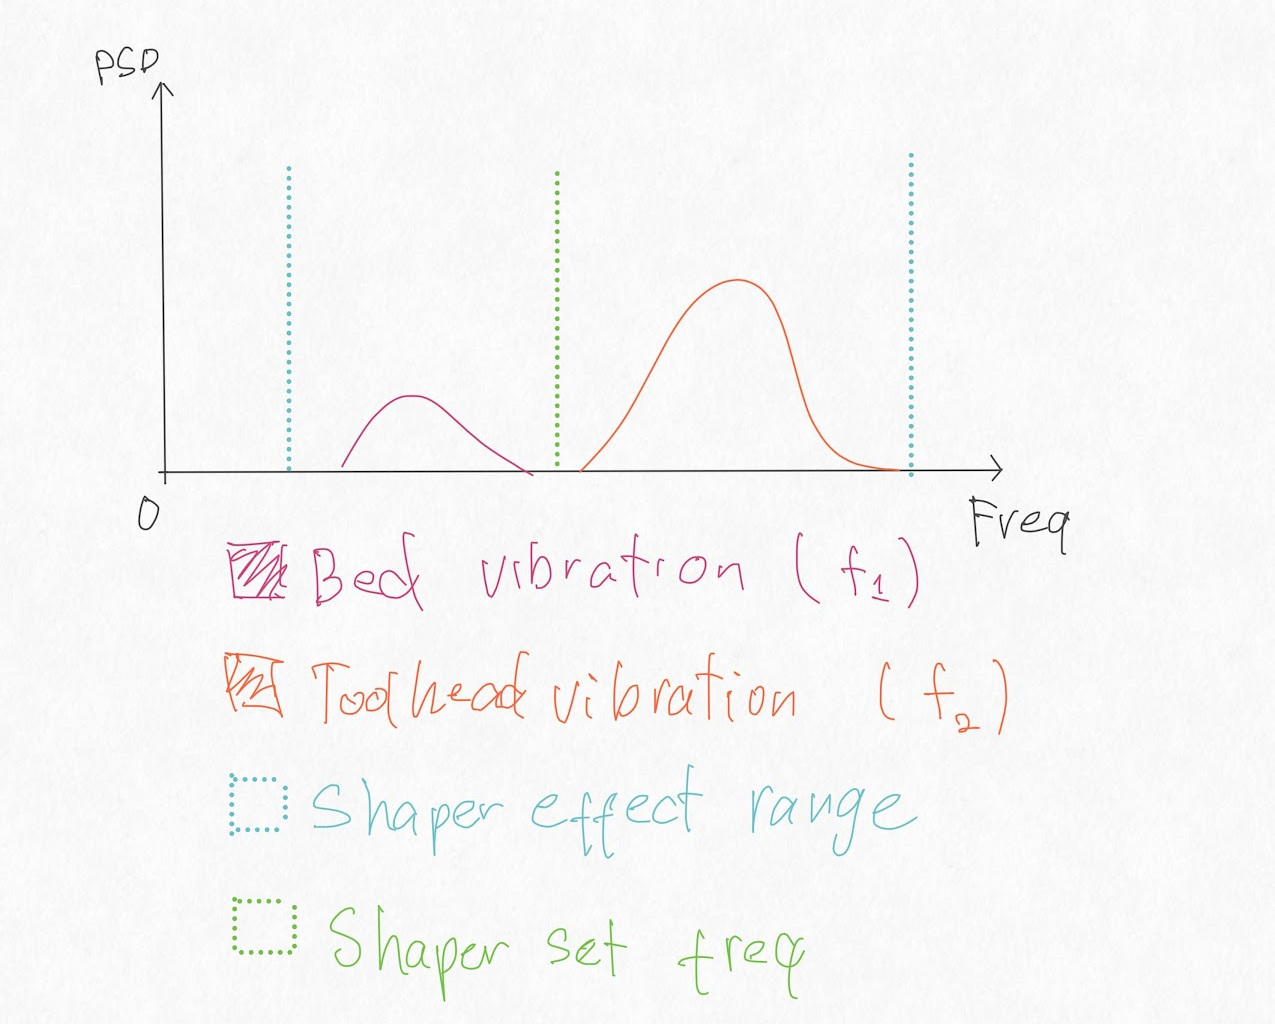 PSD
0
Freq
Bed vibration (f1)
Toolhead vibration (f2)
Shaper effect range
Shaper set freq